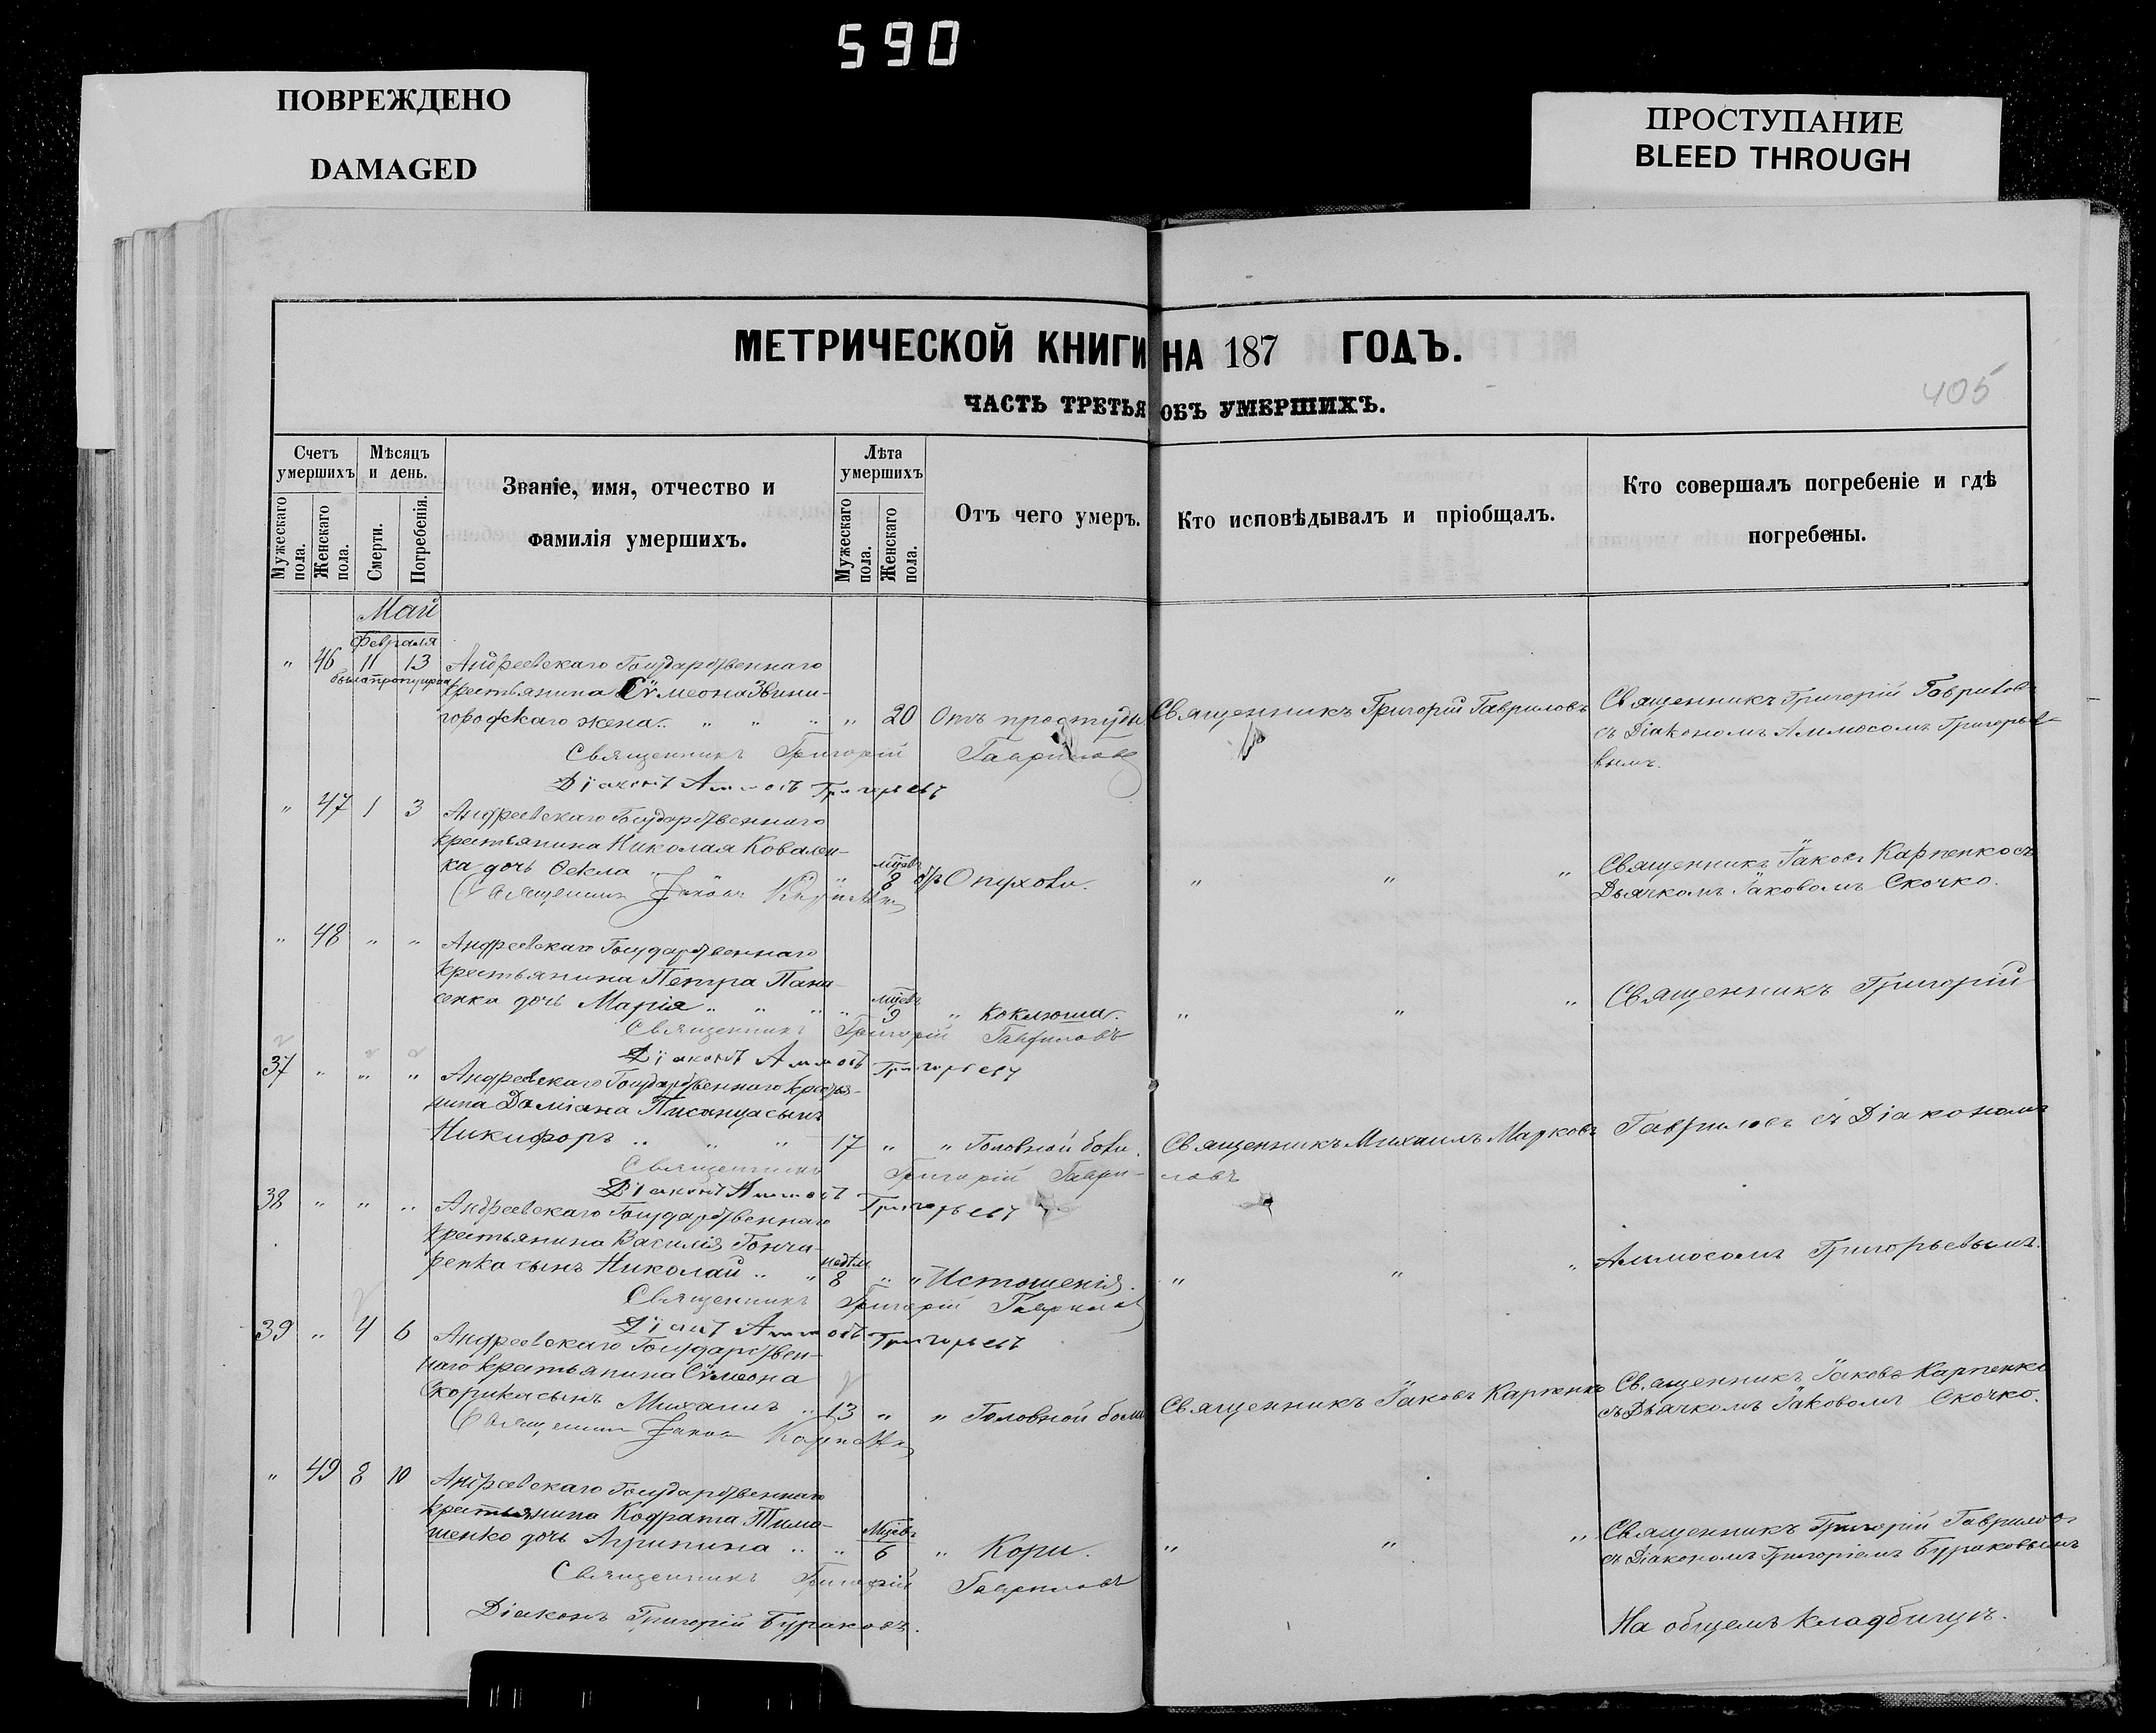 590
ПОВРЕЖДЕНО
DAMAGED
ПРОСТУПАНИЕ
BLEED THROUGH
МЕТРИЧЕСКОЙ КНИГИ НА 187 ГОДЪ.
405
ЧАСТЬ ТРЕТЬЯ ОБЪ УМЕРШИХЪ.
Счетъ умершихъ
Мужескаго пола.
Женскаго пола.
Мѣсяцъ и день.
Смерти.
Погребенія.
Званіе, имя, отчество и фамилія умершихъ.
Лѣта умершихъ
Мужескаго пола.
Женскаго пола.
Отъ чего умеръ.
Кто исповѣдывалъ и пріобщалъ.
Кто совершалъ погребеніе и гдѣ погребены.
Май
Февраля
" 46 11 13 Андреевскаго Государственнаго
крестьянина Сѵмеона Звини-
городскаго жена " " " " 20 Отъ простуды Священникъ Григорій Гавриловъ Священникъ Григорій Гавриловъ
съ Діакономъ Аммосомъ Григорье-
вымъ.
Священникъ Григорій Гавриловъ
Діаконъ Аммосъ Григорьевъ
" 47 1 3 Андреевскаго Государственнаго
крестьянина Николая Ковален-
ка дочь Ѳекла " " мцевъ 8 Опухоли. " " " Священникъ Іаковъ Карпенко съ
Дьячкомъ Іаковомъ Скочко.
Священникъ Іаковъ Карпенко
" 48 " " Андреевскаго Государственнаго
крестьянина Петра Пана-
сенка дочь Марія " " " " мцевъ 9 " Коклюша. " " " Священникъ Григорій
Священникъ Григорій Гавриловъ
Діаконъ Аммосъ Григорьевъ
37 " " " Андреевскаго Государственнаго крестья-
нина Даміана Писанца сынъ
Никифоръ " " " 17 " " Головной боли. Священникъ Михаилъ Марковъ Гавриловъ съ Діакономъ
Священникъ Григорій Гаври-ловъ
Діаконъ Аммосъ Григорьевъ
38 " " " Андреевскаго Государственнаго
крестьянина Василія Гонча-
ренка сынъ Николай " " недѣль 8 " " Истощенія. " " " Аммосомъ Григорьевымъ.
Священникъ Григорій Гавриловъ
Діаконъ Аммосъ Григорьевъ
39 " 4 6 Андреевскаго Государствен-
наго крестьянина Сѵмеона
Скорика сынъ Михаилъ " 13 " " Головной боли Священникъ Іаковъ Карпенко Священникъ Іаковъ Карпенко
съ Дьячкомъ Іаковомъ Скочко.
Священникъ Іаковъ Карпенко
" 49 8 10 Андреевскаго Государственнаго
крестьянина Кодрата Тимо-
шенко дочь Агрипина " " Мцевъ 6 " Кори. " " " Священникъ Григорій Гавриловъ
съ Діакономъ Григоріемъ Бураковымъ
Священникъ Григорій Гавриловъ
Діаконъ Григорій Бураковъ.
На общемъ кладбищѣ.